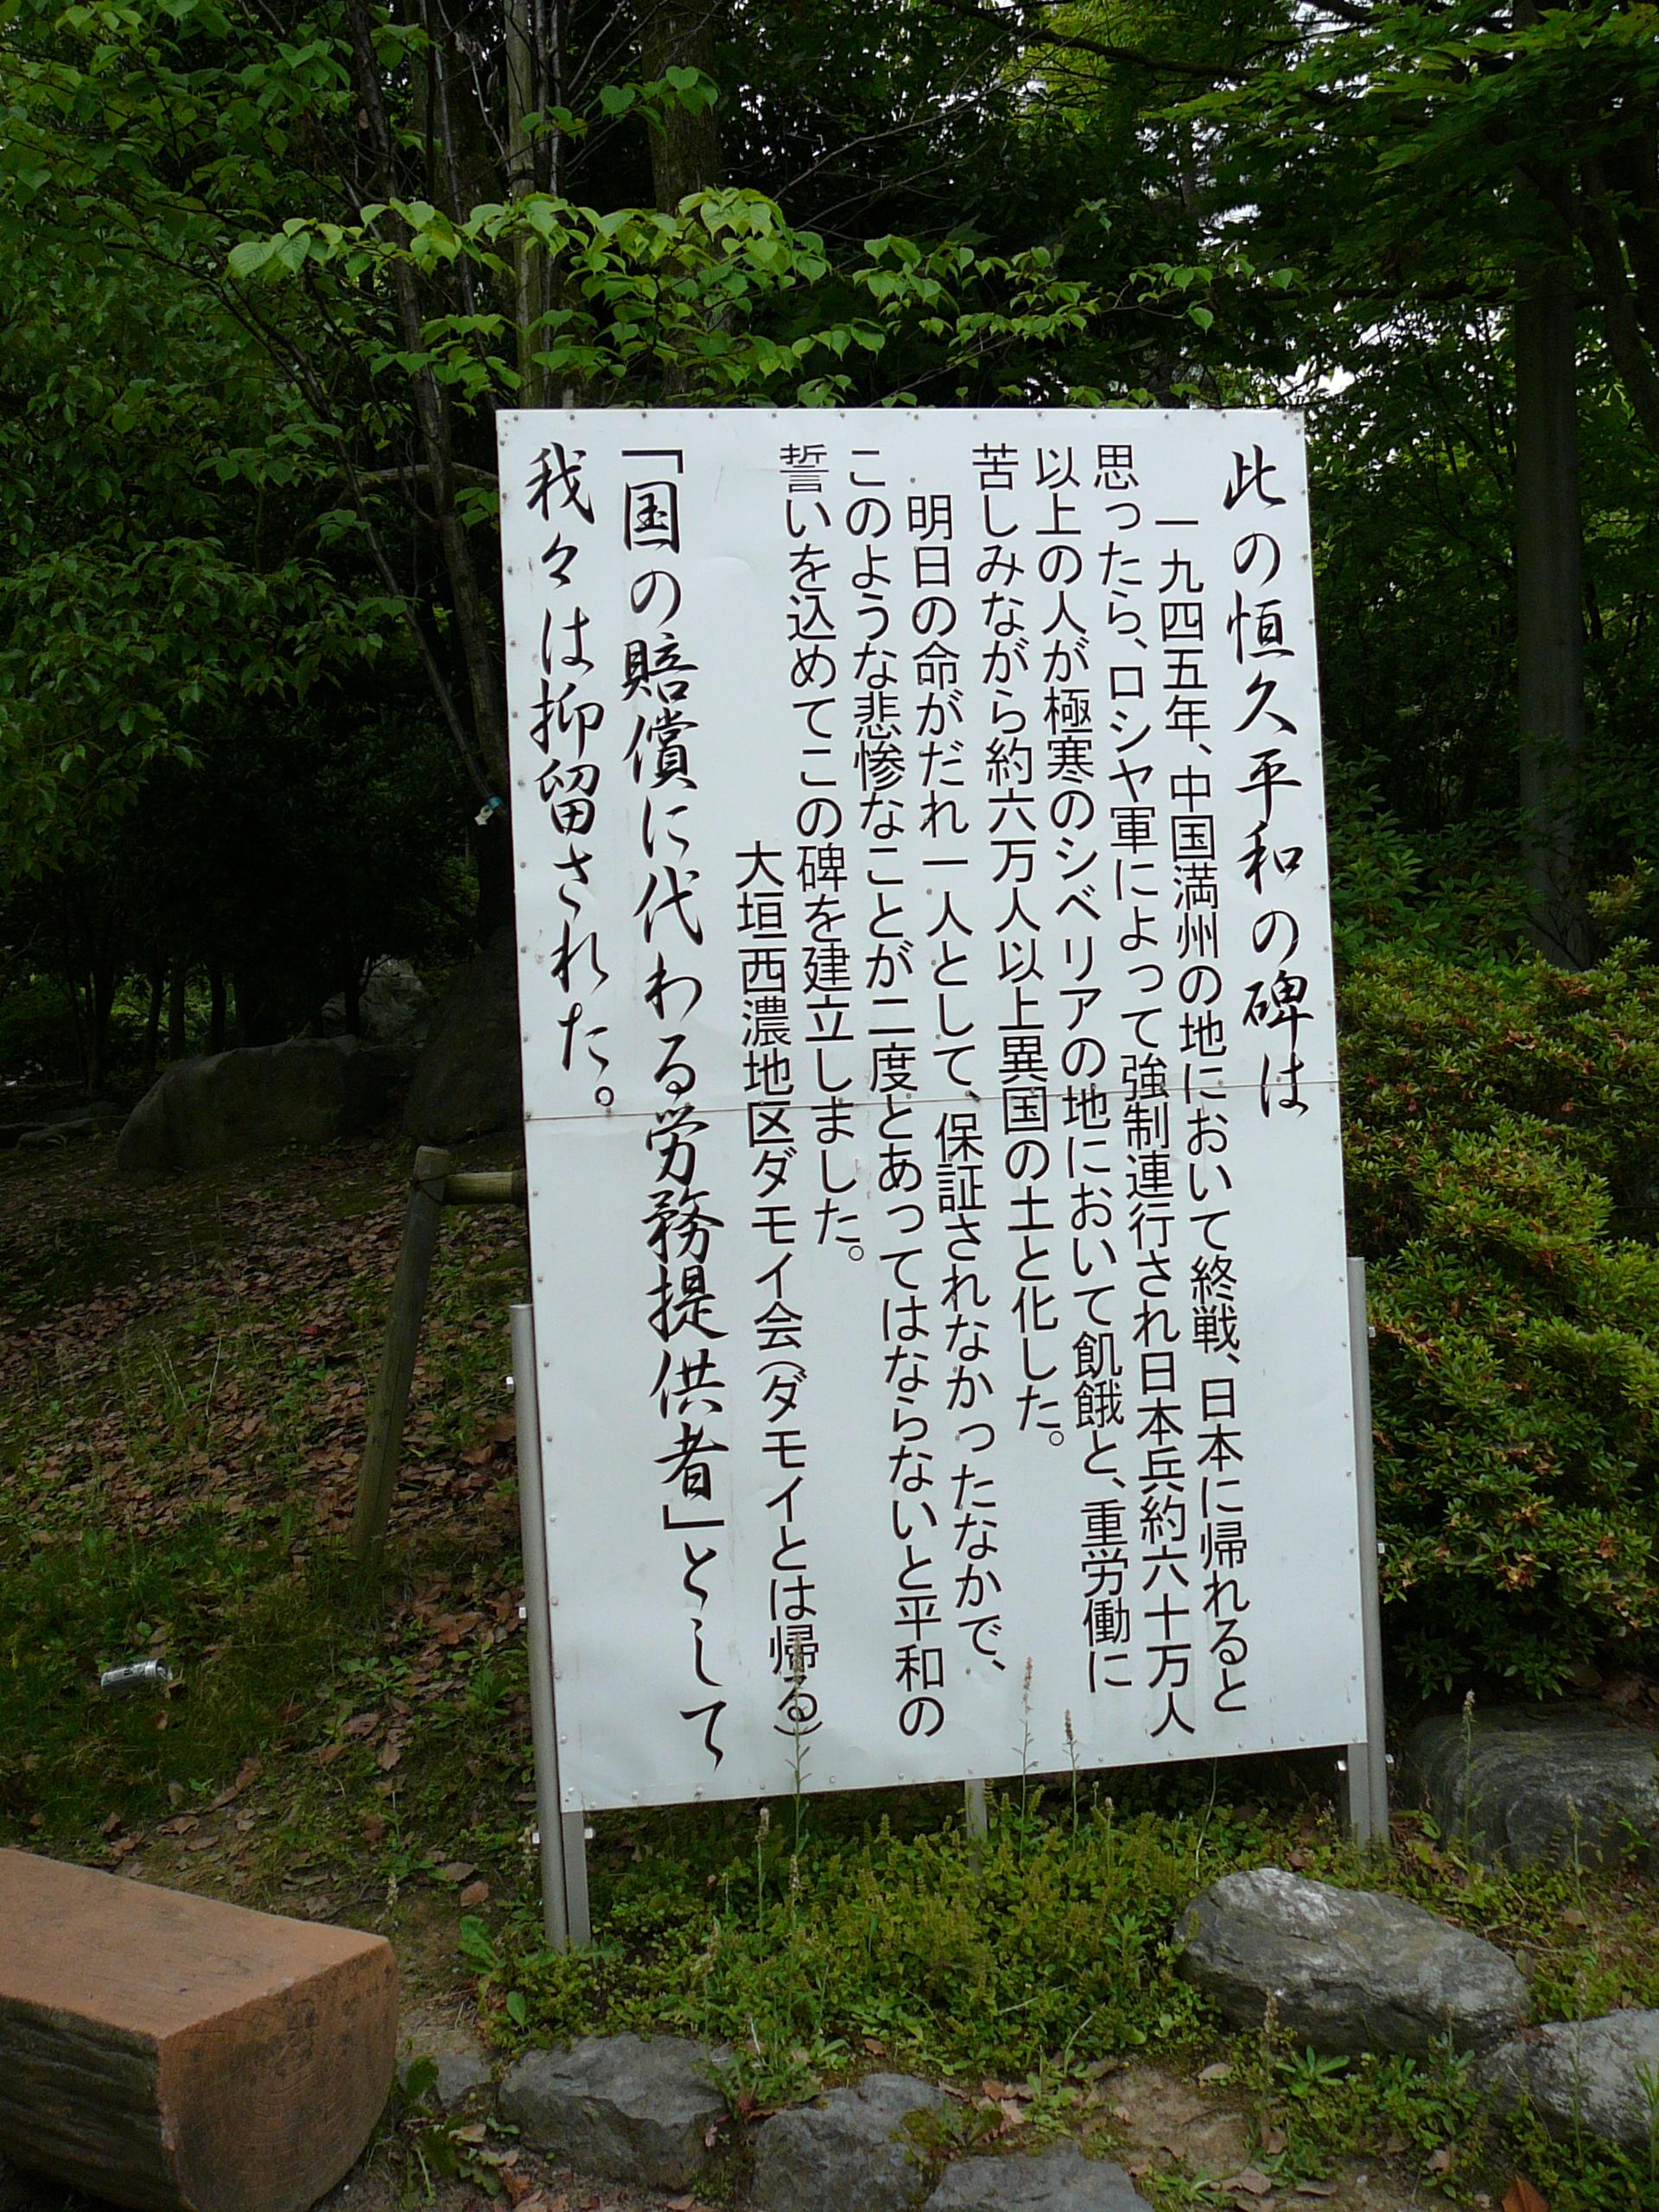 此の恒久平和の碑は
一九四五年、中国満州の地において終戦、日本に帰れると
思ったら、ロシヤ軍によって強制連行され日本兵約六十万人
以上の人が極寒のシベリアの地において飢餓と、重労働に
苦しみながら約六万人以上異国の土と化した。
明日の命がだれ一人として、保証されなかったなかで、
このような悲惨なことが二度とあってはならないと平和の
誓いを込めてこの碑を建立しました。
大垣西濃地区ダモイ会(ダモイとは帰る)
「国の賠償に代わる労務提供者」として
我々は抑留された。